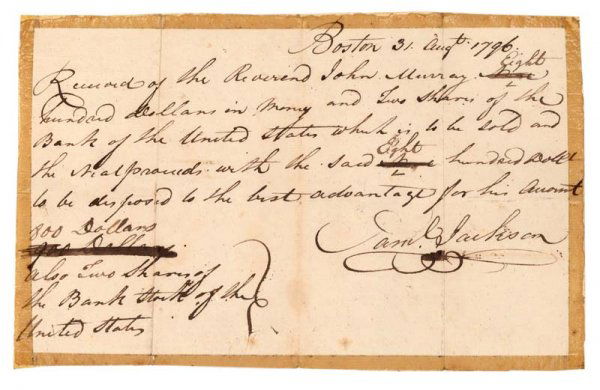 Boston 31. Augt. 1796
Eight
Received of the Reverend John Murray Nine
hundred Dollars in Money and Two Shares of the
Bank of the United States which is to be sold and
Eight
the Neat proceeds with the said hundred Dollrs
to be disposed to the best advantage for his Amount
Saml. Jackson
800 Dollars
900 Dollars
also Two Shares of
the Bank Stock of the
United States